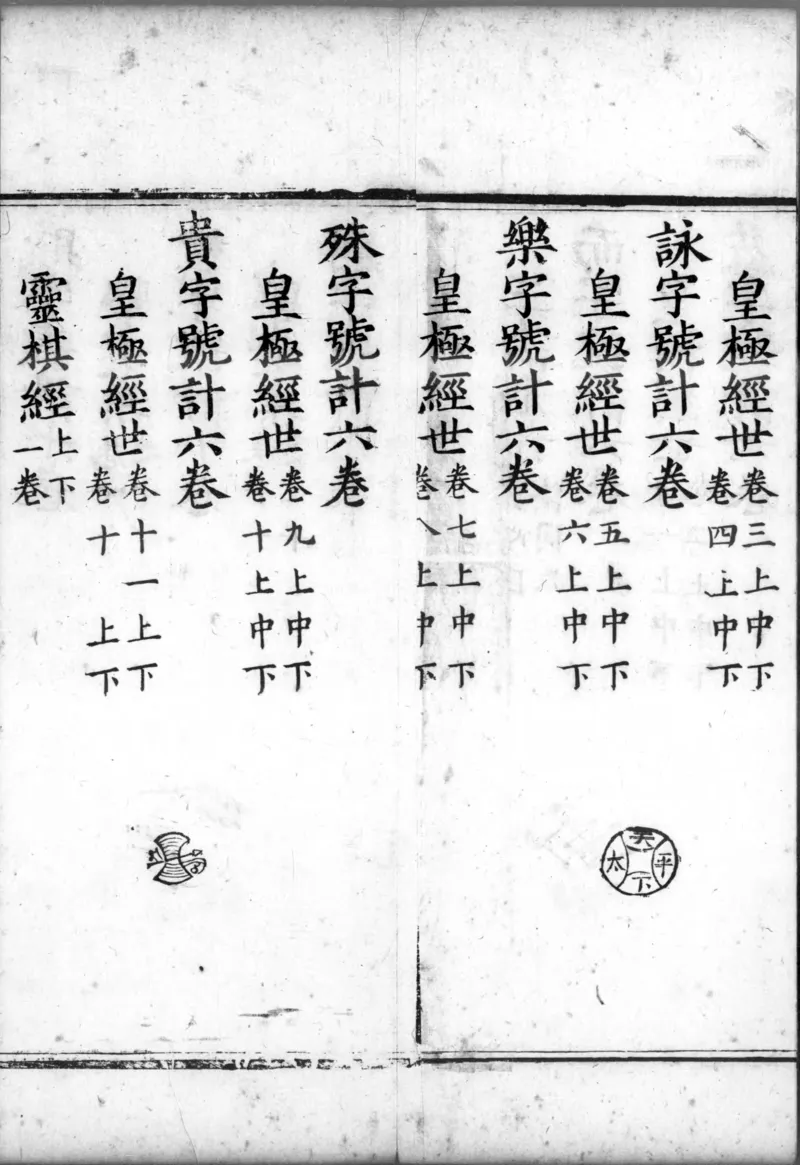 皇極經世卷三上中下
卷四上中下
詠字號計六卷
皇極經世卷五上中下
卷六上中下
樂字號計六卷
皇極經世卷七上中下
卷八上中下
殊字號計六卷
皇極經世卷九上中下
卷十上中下
貴字號計六卷
皇極經世卷十一上下
卷十 上下
靈棋經上下
一卷
天下太平